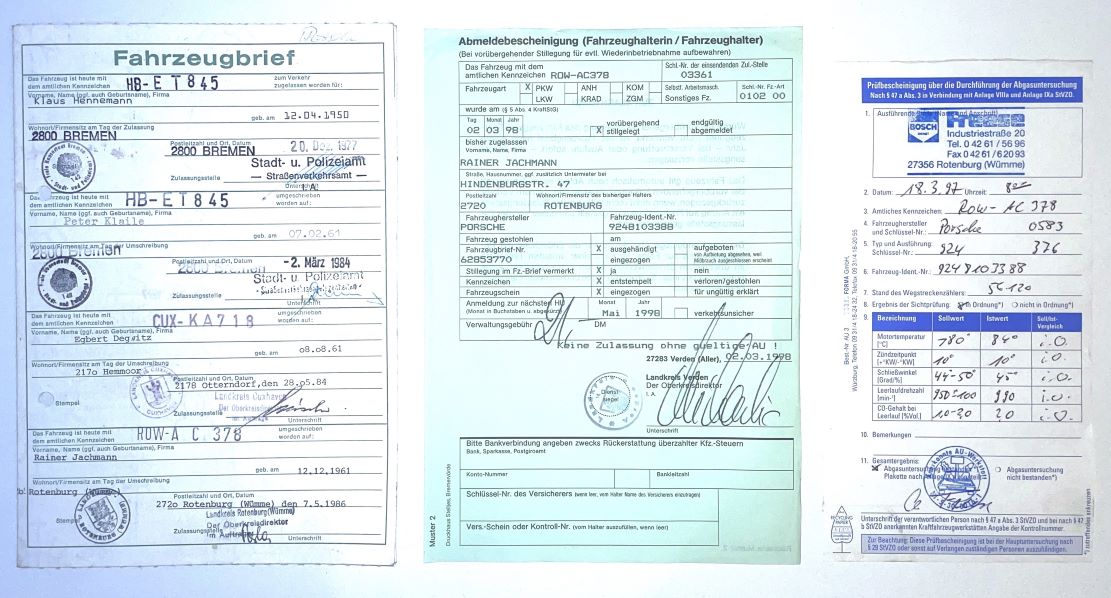 Fahrzeugbrief
Das Fahrzeug ist heute mit
dem amtlichen Kennzeichen
HB-ET845
zum Verkehr
zugelassen worden für:
Vorname, Name (ggf. auch Geburtsname), Firma
Klaus Hennemann
geb. am 12.04.1950
Wohnort/Firmensitz am Tag der Zulassung
2800 BREMEN
Postleitzahl und Ort, Datum
2800 BREMEN 20. Dez. 1977
Stadt- u. Polizeiamt
Zulassungsstelle
— Straßenverkehrsamt —
I. A.
Unterschrift
Das Fahrzeug ist heute mit
dem amtlichen Kennzeichen
HB-ET845
umgeschrieben
worden auf:
Vorname, Name (ggf. auch Geburtsname), Firma
Peter Klaile
geb. am 07.02.61
Wohnort/Firmensitz am Tag der Umschreibung
2800 Bremen
Postleitzahl und Ort, Datum
2800 Bremen -2. März 1984
Stadt- u. Polizeiamt
Zulassungsstelle
Unterschrift
Das Fahrzeug ist heute mit
dem amtlichen Kennzeichen
CUX-KA718
umgeschrieben
worden auf:
Vorname, Name (ggf. auch Geburtsname), Firma
Egbert Degwitz
geb. am 08.08.61
Wohnort/Firmensitz am Tag der Umschreibung
217o Hemmoor
Postleitzahl und Ort, Datum
2178 Otterndorf, den 28.05.84
Landkreis Cuxhaven
Stempel
Der Oberkreisdirektor
Zulassungsstelle
Unterschrift
Das Fahrzeug ist heute mit
dem amtlichen Kennzeichen
ROW-AC 378
umgeschrieben
worden auf:
Vorname, Name (ggf. auch Geburtsname), Firma
Rainer Jachmann
geb. am 12,12,1961
Wohnort/Firmensitz am Tag der Umschreibung
Rotenburg (Wümme)
Postleitzahl und Ort, Datum
272o Rotenburg (Wümme) den 7.5.1986
Landkreis Rotenburg (Wümme)
Stempel
Der Oberkreisdirektor
Zulassungsstelle
Im Auftrage
Unterschrift
Abmeldebescheinigung (Fahrzeughalterin / Fahrzeughalter)
(Bei vorübergehender Stillegung für evtl. Wiederinbetriebnahme aufbewahren)
Das Fahrzeug mit dem
amtlichen Kennzeichen ROW-AC378
Schl.-Nr. der einsendenden Zul.-Stelle
03361
Fahrzeugart X PKW ANH KOM Selbst. Arbeitsmasch.
LKW KRAD ZGM Sonstiges Fz.
Schl.-Nr. Fz.-Art
0102 00
wurde am (§ 5 Abs. 4 KraftStG)
Tag Monat Jahr
02 03 98
X vorübergehend
stillgelegt
endgültig
abgemeldet
bisher zugelassen
Vorname, Name, Firma
RAINER JACHMANN
Straße, Hausnummer, ggf. zusätzlich Untermieter bei
HINDENBURGSTR. 47
Postleitzahl Wohnort/Firmensitz des bisherigen Halters
2720 ROTENBURG
Fahrzeughersteller Fahrzeug-Ident.-Nr.
PORSCHE 9248103388
Fahrzeug gestohlen am
Fahrzeugbrief-Nr.
62853770
X ausgehändigt
eingezogen
aufgeboten
(von Aufbietung abgesehen, weil
Mißbrauch ausgeschlossen erscheint)
Stillegung im Fz.-Brief vermerkt X ja nein
Kennzeichen X entstempelt verloren/gestohlen
Fahrzeugschein X eingezogen für ungültig erklärt
Anmeldung zur nächsten HU
(Monat in Buchstaben u. abgekürzt)
Monat Jahr
Mai 1998
verkehrsunsicher
Verwaltungsgebühr DM
Keine Zulassung ohne gueltige AU !
27283 Verden (Aller), 02.03.1998
Landkreis Verden
Der Oberkreisdirektor
I. A.
Dienst
siegel
Unterschrift
Bitte Bankverbindung angeben zwecks Rückerstattung überzahlter Kfz.-Steuern
Bank, Sparkasse, Postgiroamt
Konto-Nummer Bankleitzahl
Schlüssel-Nr. des Versicherers (wenn leer, vom Halter Name des Versicherers einzutragen)
Vers.-Schein oder Kontroll-Nr. (vom Halter auszufüllen, wenn leer)
Muster 2
Prüfbescheinigung über die Durchführung der Abgasuntersuchung
Nach § 47 a Abs. 3 in Verbindung mit Anlage VIIIa und Anlage IXa StVZO.
BOSCH
DIENST
Industriestraße 20
Tel. 0 42 61 / 56 96
Fax 0 42 61 / 6 20 93
27356 Rotenburg (Wümme)
2. Datum: 18.3.97 Uhrzeit: 8⁰⁰
3. Amtliches Kennzeichen: ROW-AC 378
4. Fahrzeughersteller
und Schlüssel-Nr.: Porsche 0583
5. Typ und Ausführung,
Schlüssel-Nr.: 924 376
6. Fahrzeug-Ident.-Nr.: 9248103388
7. Stand des Wegstreckenzählers: 56120
8. Ergebnis der Sichtprüfung: in Ordnung*) nicht in Ordnung*)
9.
Bezeichnung Sollwert Istwert Soll/Ist-
Vergleich
Motortemperatur
[°C] >80° 84° i.O.
Zündzeitpunkt
[+°KW/-°KW] 10° 10° i.O.
Schließwinkel
[Grad/%] 44-50° 45° i.O.
Leerlaufdrehzahl
[min-¹] 950±100 990 i.O.
CO-Gehalt bei
Leerlauf [%Vol.] 1,0-2,0 2,0 i.O.
10. Bemerkungen
11. Gesamtergebnis:
Abgasuntersuchung
Plakette
Abgasuntersuchung
nicht bestanden*)
RECYCLING
PAPIER
Unterschrift der verantwortlichen Person nach § 47 a Abs. 3 StVZO und bei nach § 47
b StVZO anerkannten Kraftfahrzeugwerkstätten Angabe der Kontrollnummer.
Zur Beachtung: Diese Prüfbescheinigung ist bei der Hauptuntersuchung nach
§ 29 StVZO oder sonst auf Verlangen zuständigen Personen auszuhändigen.